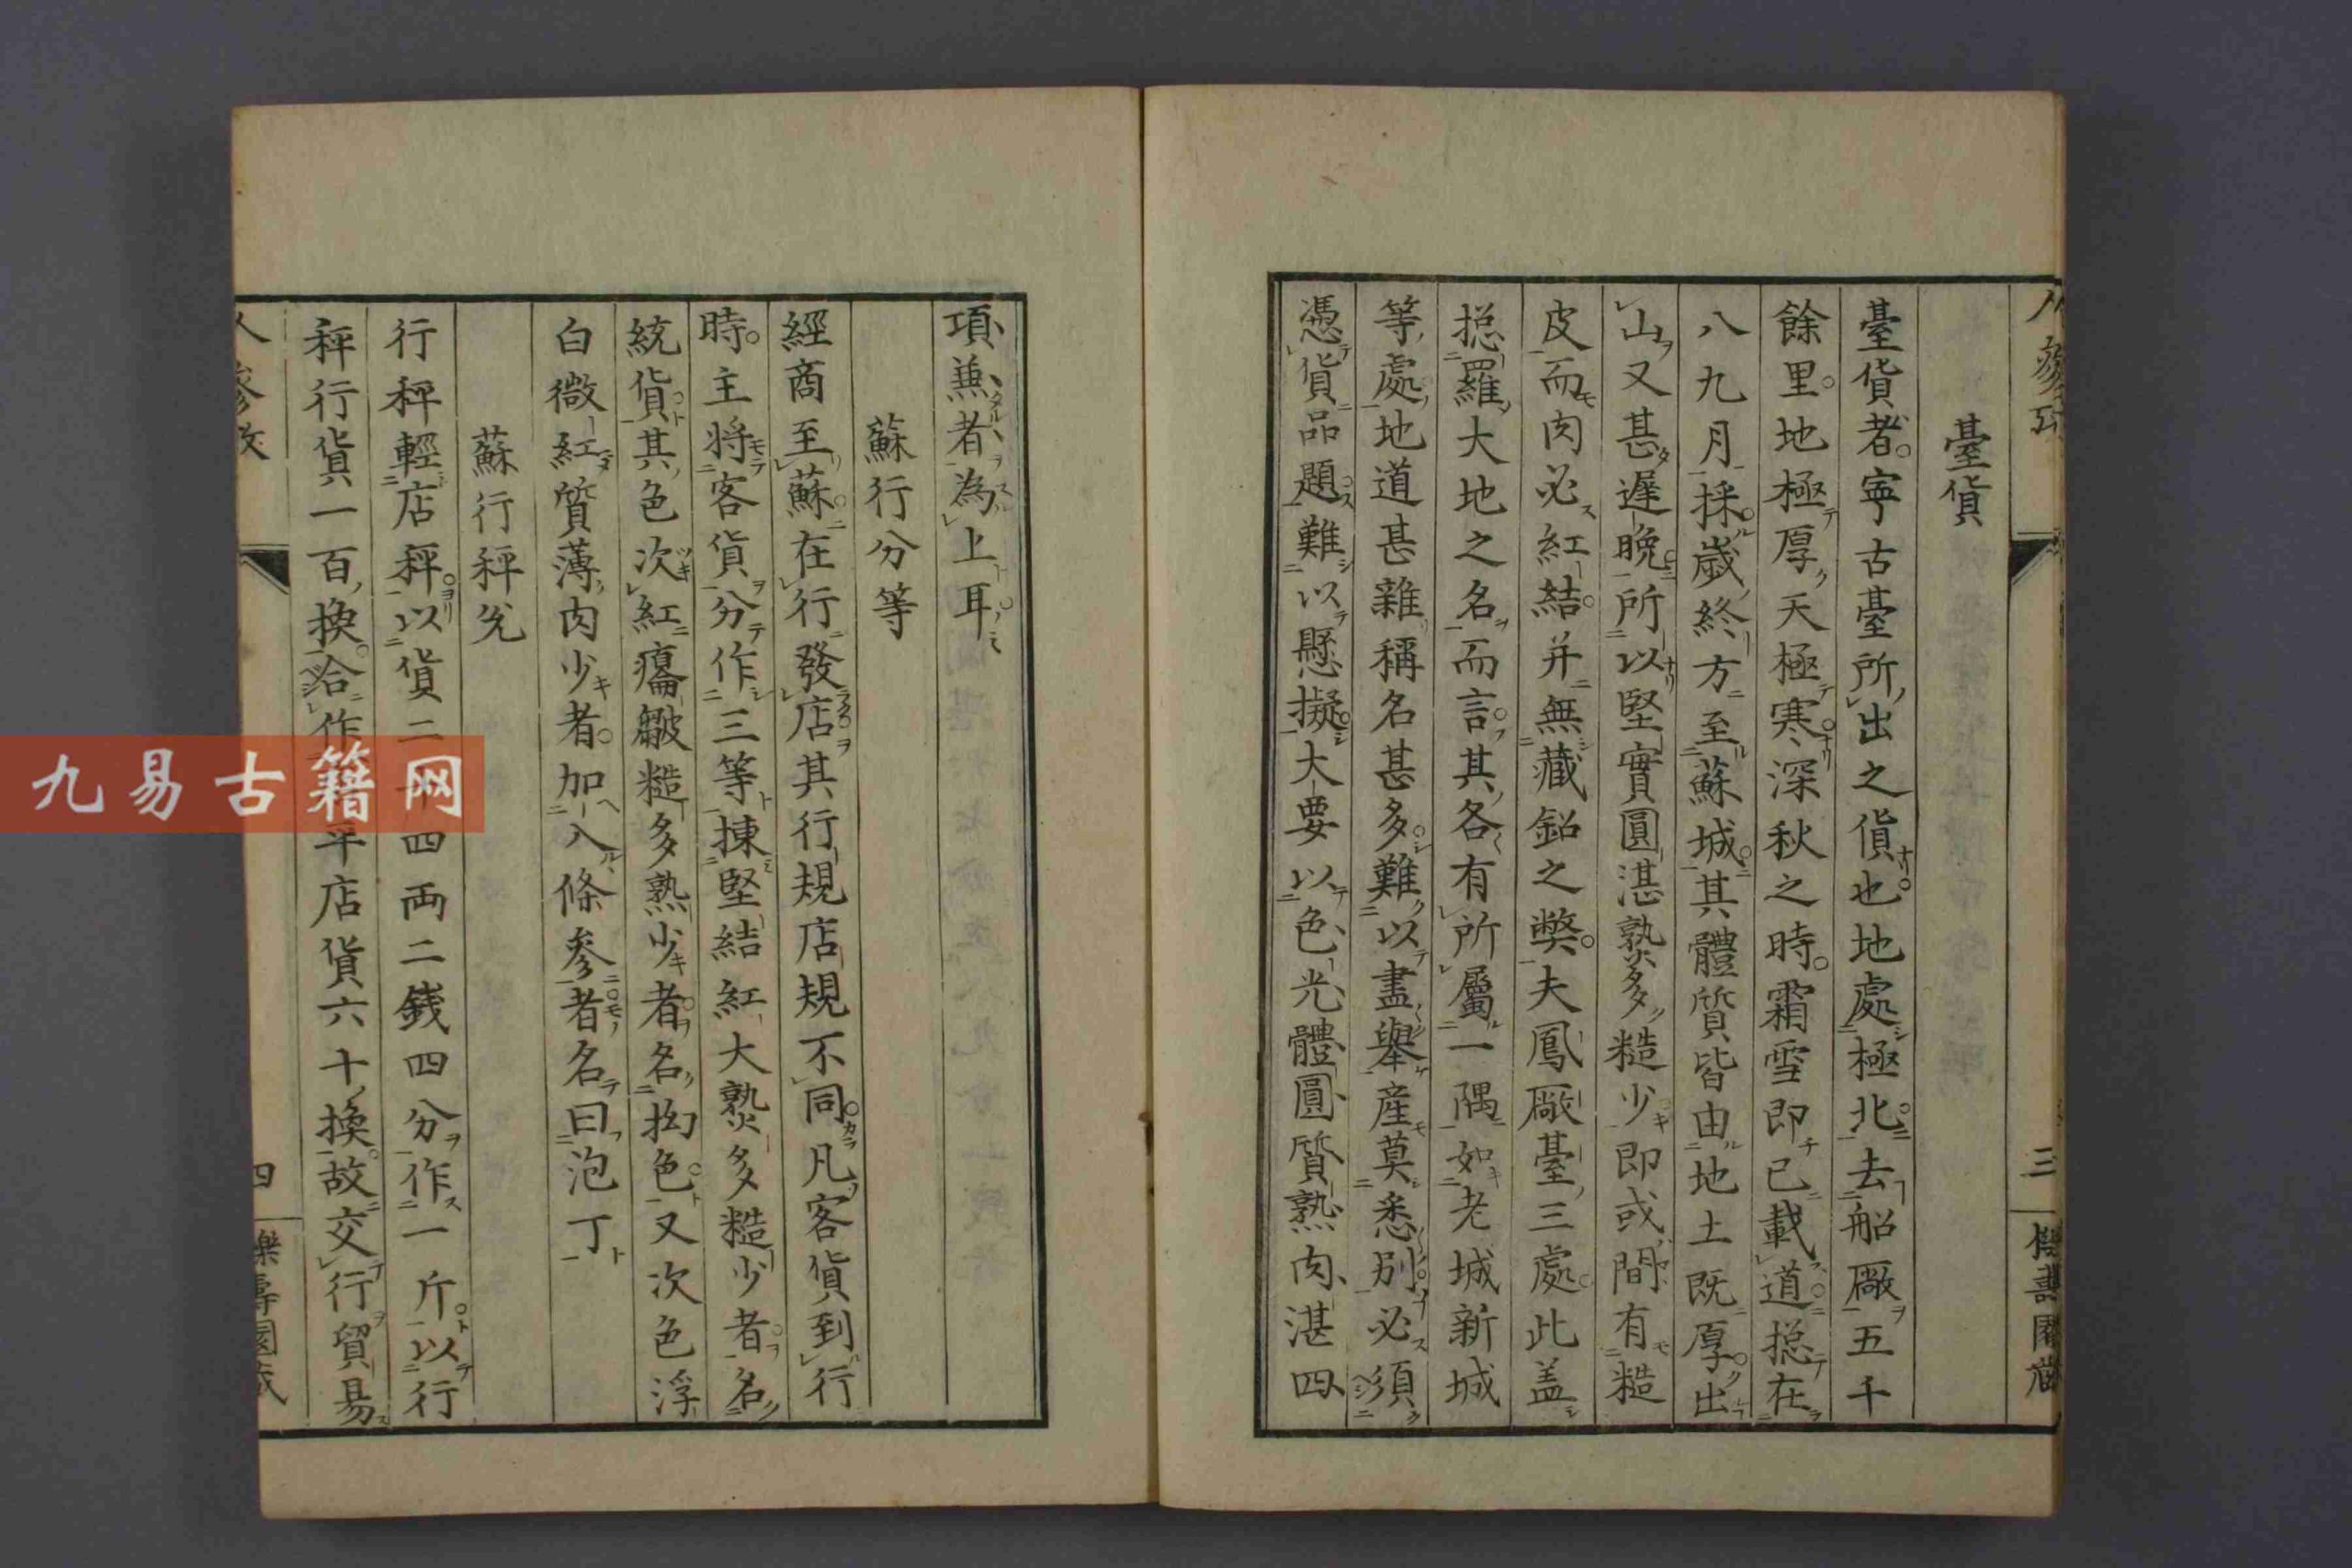 臺貨
臺貨者寧古臺所出之貨也地處極北去船廠五千
餘里地極厚天極寒深秋之時霜雪即已載道揔在
八九月採歲終方至蘇城其體質皆由地土既厚出
山又甚遲晚所以堅實圓湛熟多糙少即或間有糙
皮而肉必紅結并無藏鉛之獘夫鳳廠臺三處此盖
揔羅大地之名而言其各有所屬一隅如老城新城
等處地道甚雜稱名甚多難以盡舉産莫悉別必須
憑貨品題難以懸擬大要以色光體圓質熟肉湛四
項兼者為上耳
蘇行分等
經商至蘇在行發店其行規店規不同凡客貨到行
時主将客貨分作三等揀堅結紅大熟多糙少者名
統貨其色次紅癟皺糙多熟少者名拘色又次色浮
白微紅質薄肉少者加入條参者名曰泡丁
蘇行秤兊
行秤輕店秤以貨二十四両二銭四分作一斤以行
秤行貨一百換合作平店貨六十換故交行貿易
人參攷
三
四
九易古籍网